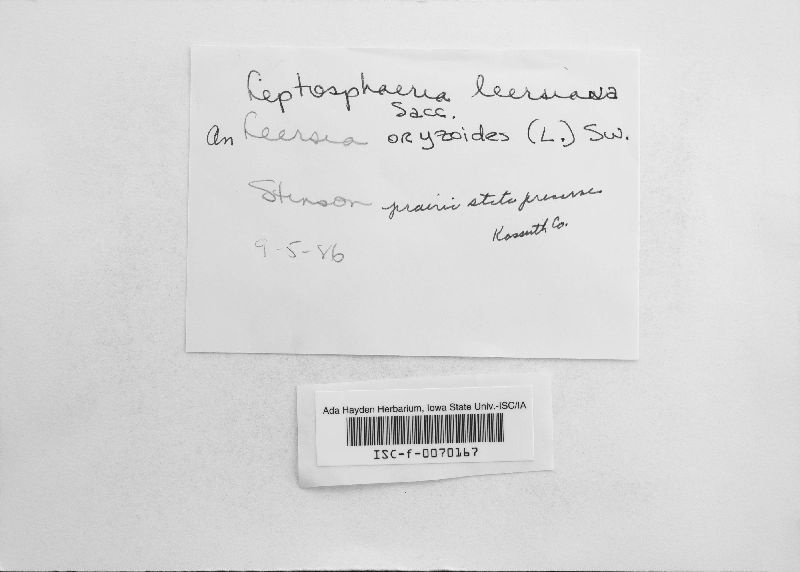 Leptosphaeria leersiana
Sacc.
On Leersia oryzoides (L.) Sw.
Stinson prairie state preserve
Kossuth Co.
9-5-86
Ada Hayden Herbarium, Iowa State Univ.-ISC/IA
ISC-f-0070167